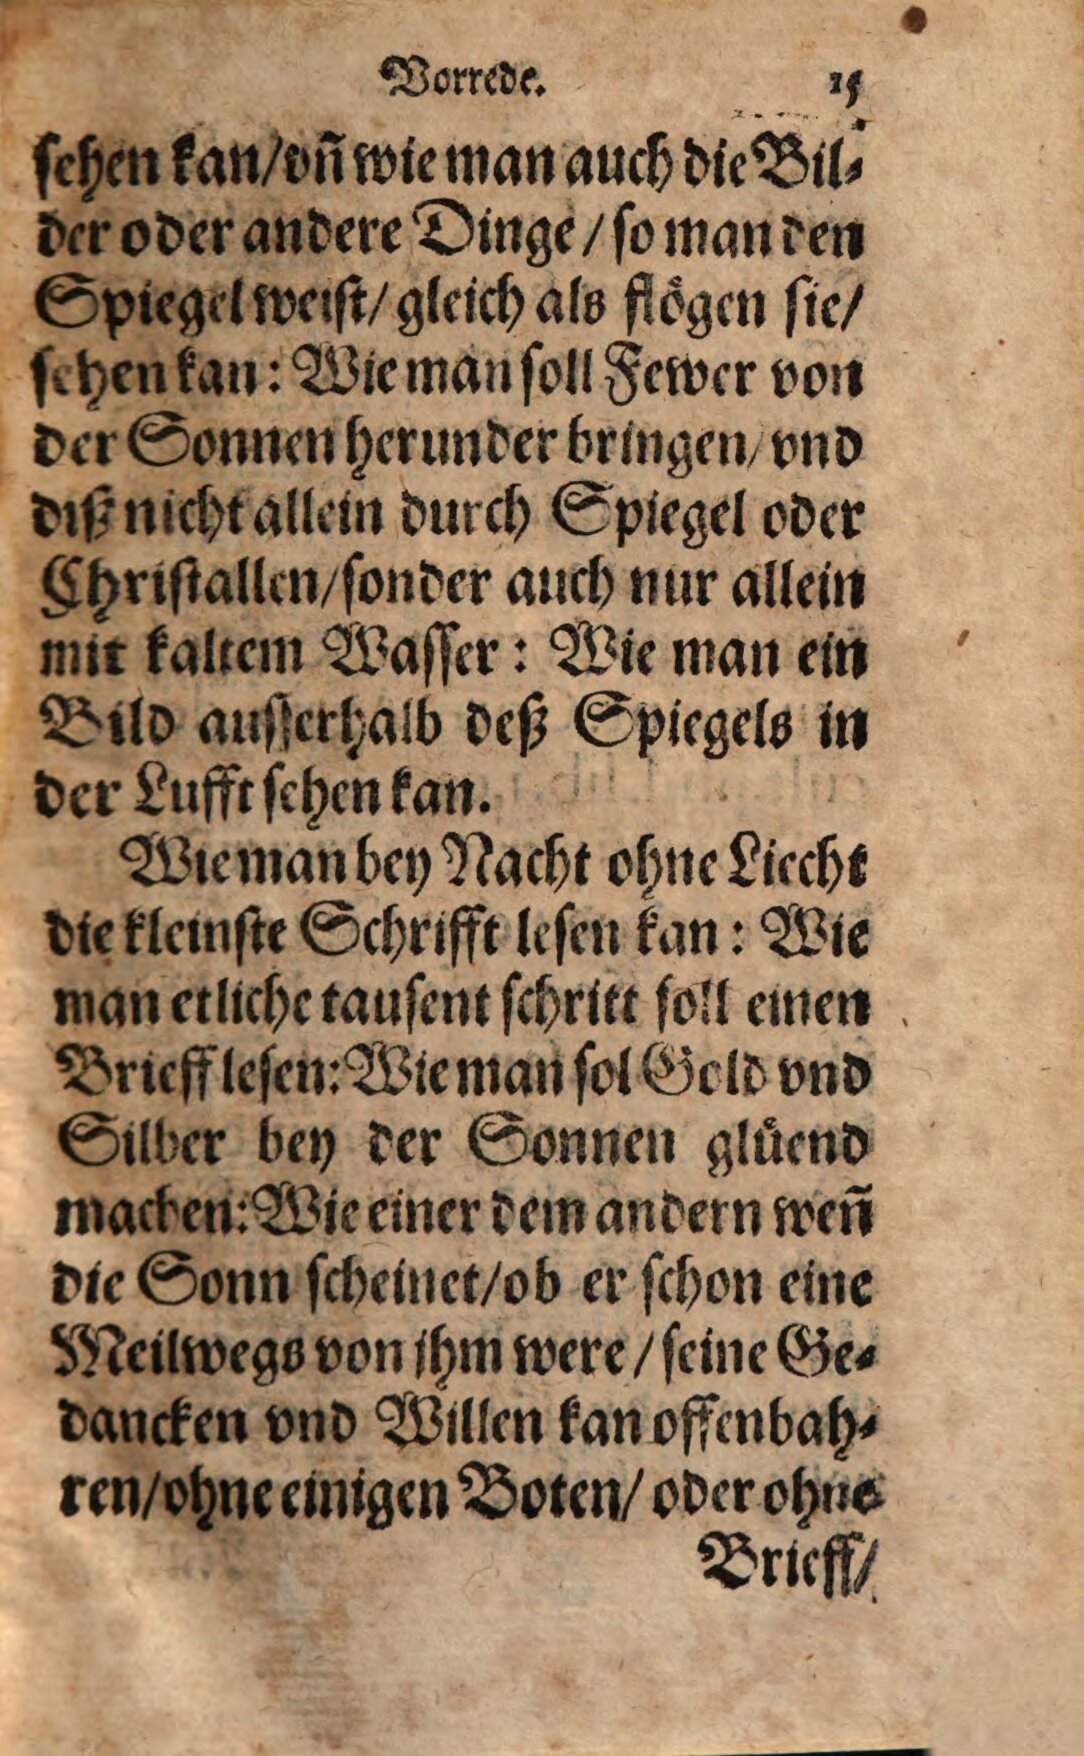 Vorrede. 15
sehen kan/vñ wie man auch die Bil-
der oder andere Dinge / so man den
Spiegel weist/ gleich als flögen sie/
sehen kan: Wie man soll Fewer von
der Sonnen herunder bringen/ vnd
diß nicht allein durch Spiegel oder
Christallen/sonder auch nur allein
mit kaltem Wasser: Wie man ein
Bild ausserhalb deß Spiegels in
der Lufft sehen kan.
Wie man bey Nacht ohne Liecht
die kleinste Schrifft lesen kan: Wie
man etliche tausent schritt soll einen
Brieff lesen: Wie man sol Gold vnd
Silber bey der Sonnen glüend
machen: Wie einer dem andern weñ
die Sonn scheinet/ob er schon eine
Meilwegs von jhm were / seine Ge-
dancken vnd Willen kan offenbah-
ren/ohne einigen Boten/ oder ohne
Brieff/